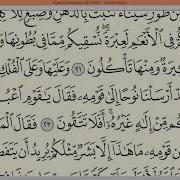 مِن طُورِ سَيْنَآءَ تَنۢبُتُ بِٱلدُّهْنِ وَصِبْغٍ لِّلْـَٔا
فِى ٱلْأَنْعَٰمِ لَعِبْرَةً ۖ نُّسْقِيكُم مِّمَّا فِى بُطُونِهَا وَ
يرَةٌ وَمِنْهَا تَأْكُلُونَ ٢١ وَعَلَيْهَا وَعَلَى ٱلْفُلْكِ
أَرْسَلْنَا نُوحًا إِلَىٰ قَوْمِهِۦ فَقَالَ يَٰقَوْمِ ٱعْبُ
مِّنْ إِلَٰهٍ غَيْرُهُۥٓ ۖ أَفَلَا تَتَّقُونَ ٢٣
مِن قَوْمِهِۦ مَا هَٰذَآ إِلَّا بَشَرٌ مِّثْلُكُمْ يُرِيدُ أَن يَتَفَضَّ